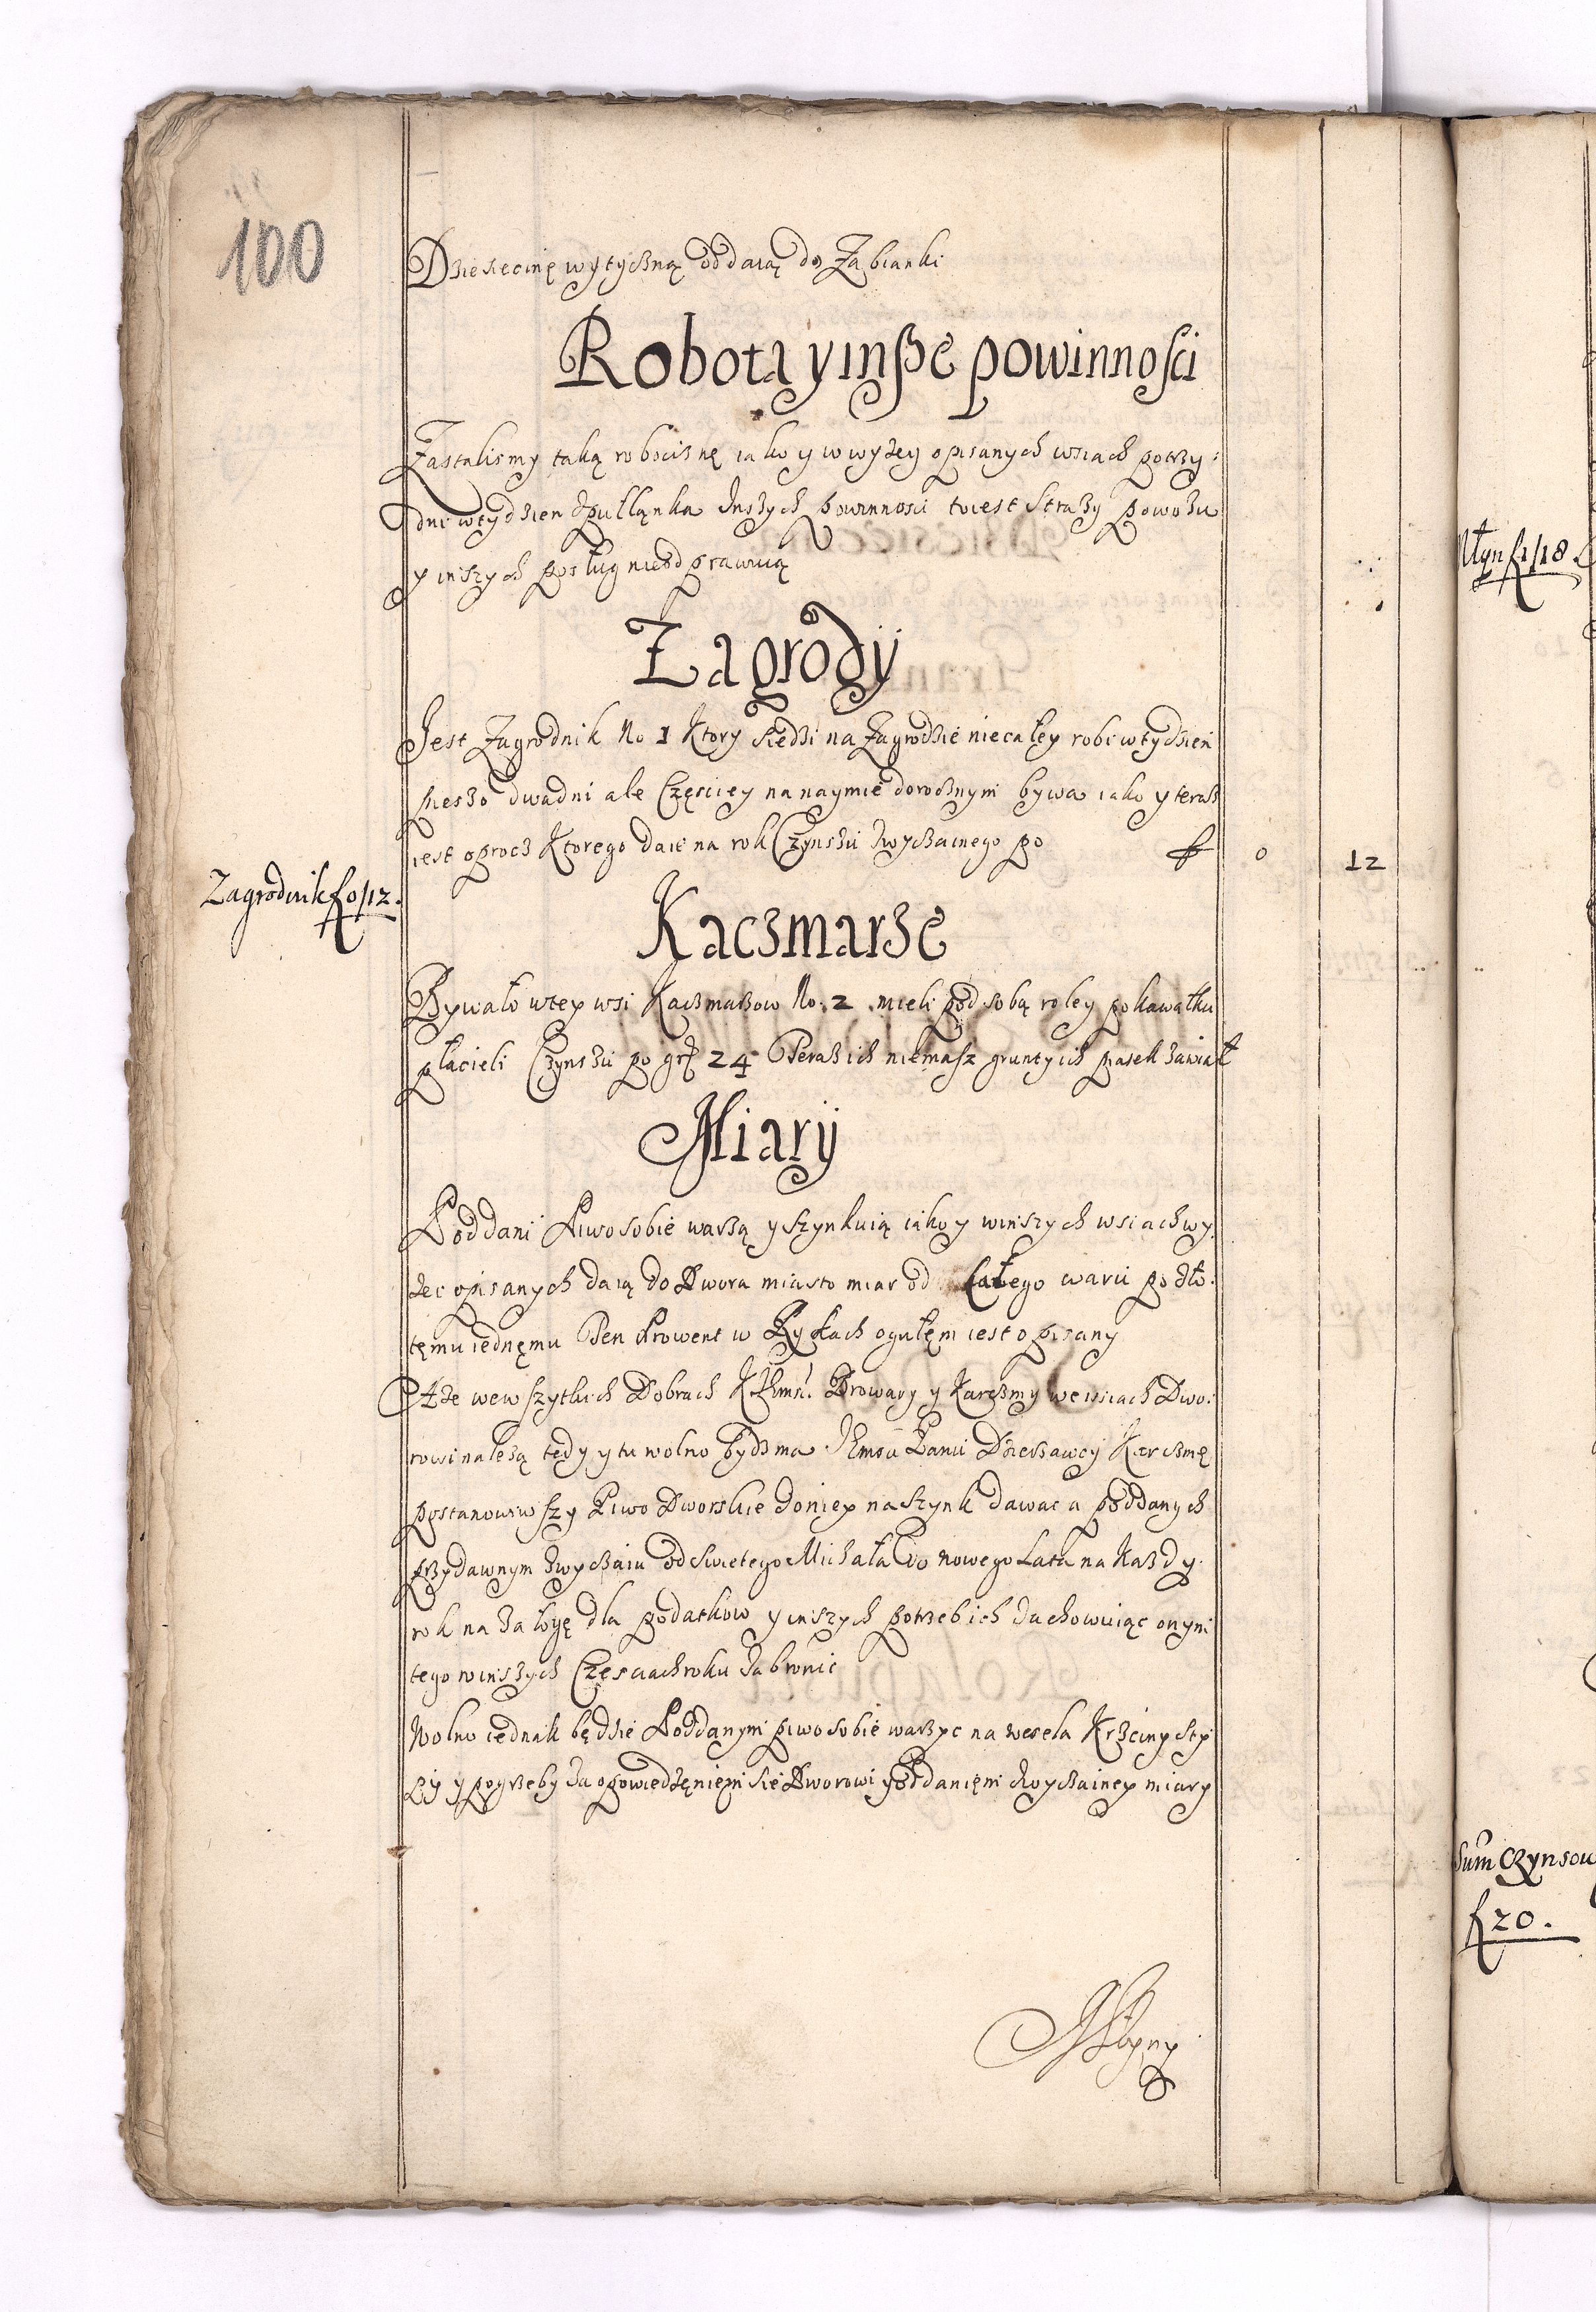 100
Dziesięcinę wytyczną oddaią do Zabianki
Robota y inße powinnosci
Zastalismy taką robociznę iako y w wyżey opisanych wsiach po trzy
dni w tydzien z pułłanka Inszych powinnosci to iest Straży powozu
y inszych posług nieodprawuią
Zagrody
Jest Zagrodnik No 1 Ktory siedzi na Zagrodzie niecałey robi w tydzień
pieszo dwa dni ale Częsciey na naymie dorocznym bywa iako y teraz
iest oprocz Ktorego daie na rok Czynszu zwyczainego po f 0 12
Zagrodnik f 0/12.
Kaczmarze
Bywało w tey wsi Kaczmarzow No. 2 mieli pod sobą roley po kawałku
płacieli Czynszu po gr 24 Teraz ich niemasz grunty ich piasek zawiał
Miary
Poddani Piwo sobie warzą y szynkuią iako y w inszych wsiach wy
żei opisanych daią do Dwora miasto miar od Całego waru po zło
temu iednemu Ten Prowent w Rykach ogułem iest opisany
A że we wszytkich Dobrach KJEmsci Browary y Karczmy we wsiach Dwo
rowi należą tedy y tu wolno bydz ma JEmsci Panu Dzierzawcy Karczmę
postanowiwszy Piwo Dworskie do niey na szynk dawac a poddanych
przy dawnym zwyczaiu od swietego Michała do nowego Lata na Kazdy
rok na załogę dla podatkow y inszych potrzeb ich zachowuiąc onym
tego w inszych Częsciach roku zabronic
Wolno iednak będzie Poddanym piwo sobie warzyc na wesela Krzciny Sty
py y pogrzeby za opowiedzeniem sie Dworowi y oddaniem zwyczainey miary
Młyny
Młyn f 1/18
Sum Czynsow
f 20.